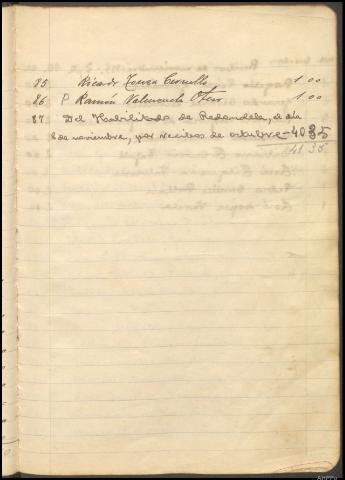 85 Ricardo Touza 1 00
86 P Ramón Valenzuela Otero 1 00
87 Del Habilitado de Redondela, el día
8 de noviembre, por recibos de octubre - 40 35
41 35